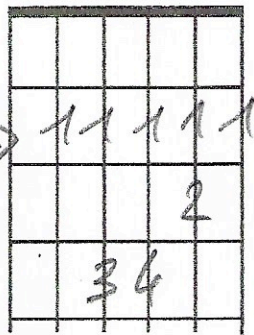 > 1 1 1 1 1
2
3 4